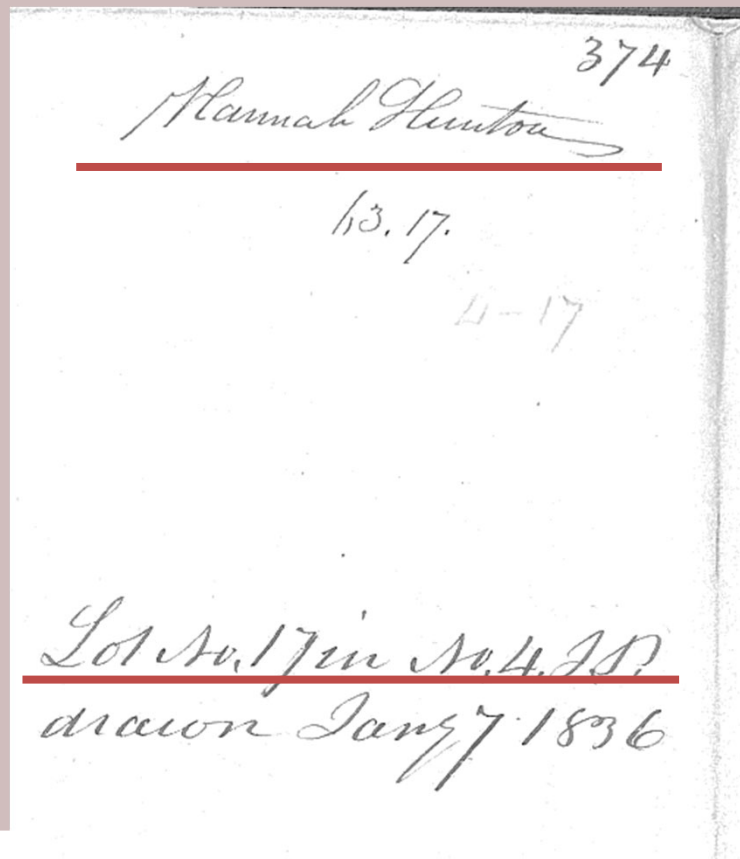 374
Hannah Hunton
13. 17.
4-17
Lot No. 17 in No. 4. I.P.
drawn Jany 7 1836